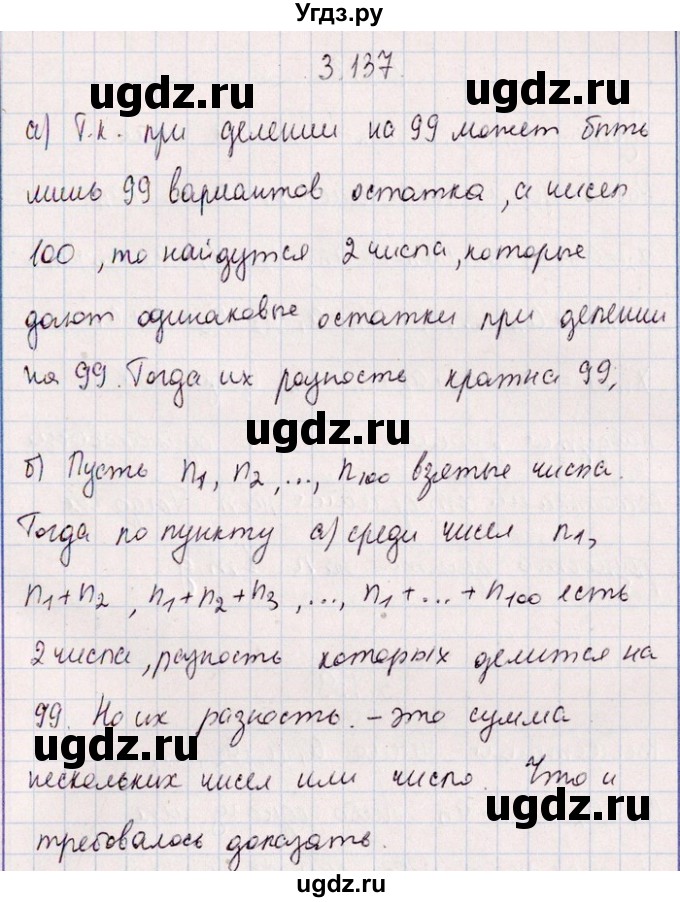 Угдз.ру
3.137.
ugdz.ru
ugdz.ru
а) Т.к. при делении на 99 может быть
лишь 99 вариантов остатка, а чисел
100, то найдутся 2 числа, которые
дают одинаковые остатки при делении
на 99. Тогда их разность кратна 99,
ugdz.ru
б) Пусть n1, n2, ..., n100 взятые числа.
Тогда по пункту а) среди чисел n1,
n1+n2, n1+n2+n3, ..., n1+...+n100 есть
2 числа, разность которых делится на
99. Но их разность. – это сумма
ugdz.ru
нескольких чисел или число. Что и
ugdz.ru
требовалось доказать.
ugdz.ru